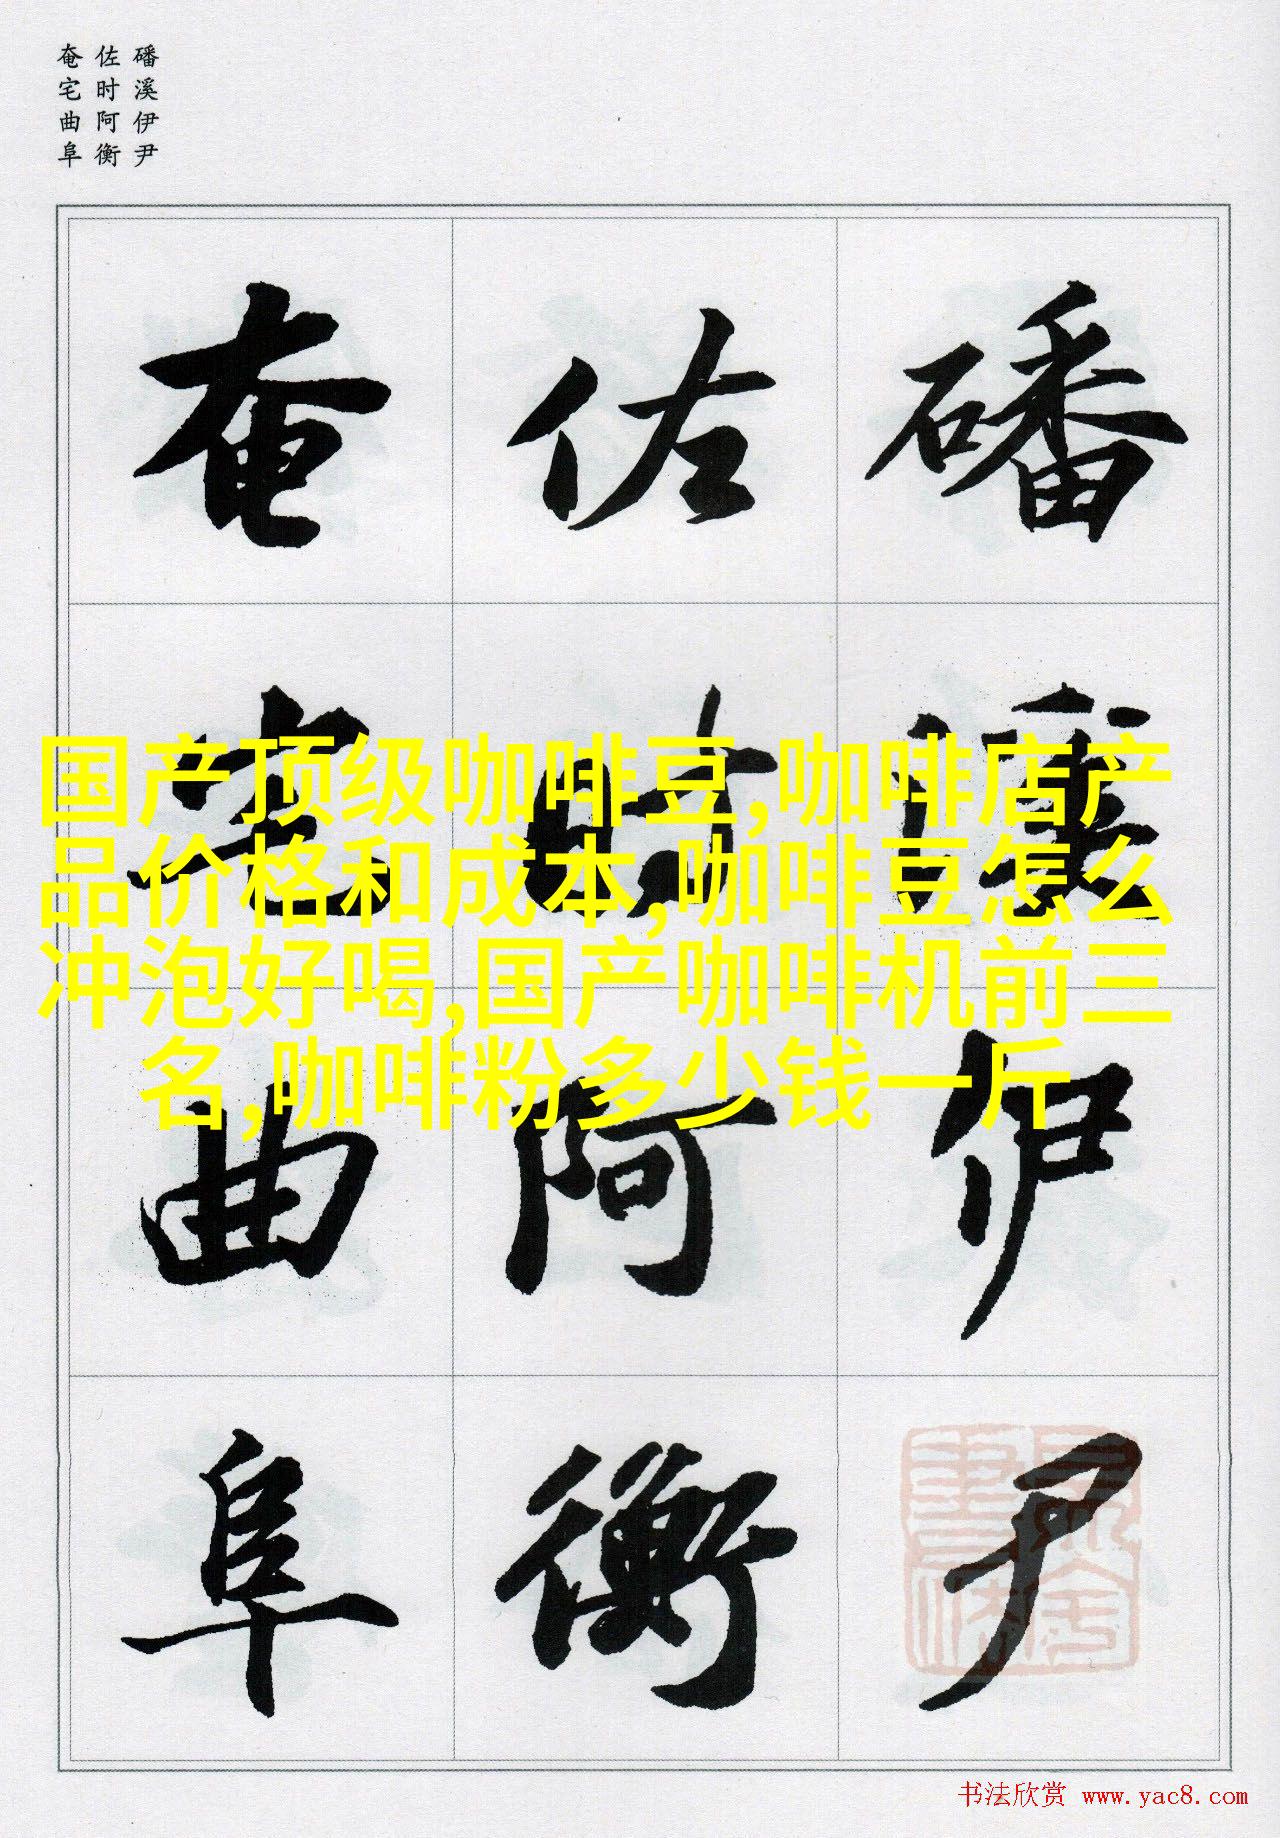 磻溪伊尹
佐时阿衡
奄宅曲阜
磻溪伊尹
佐时阿衡
奄宅曲阜
国产顶级咖啡豆,咖啡店产
品价格和成本,咖啡豆怎么
冲泡好喝,国产咖啡机前三
名,咖啡粉多少钱一斤
书法欣赏 www.yac8.com